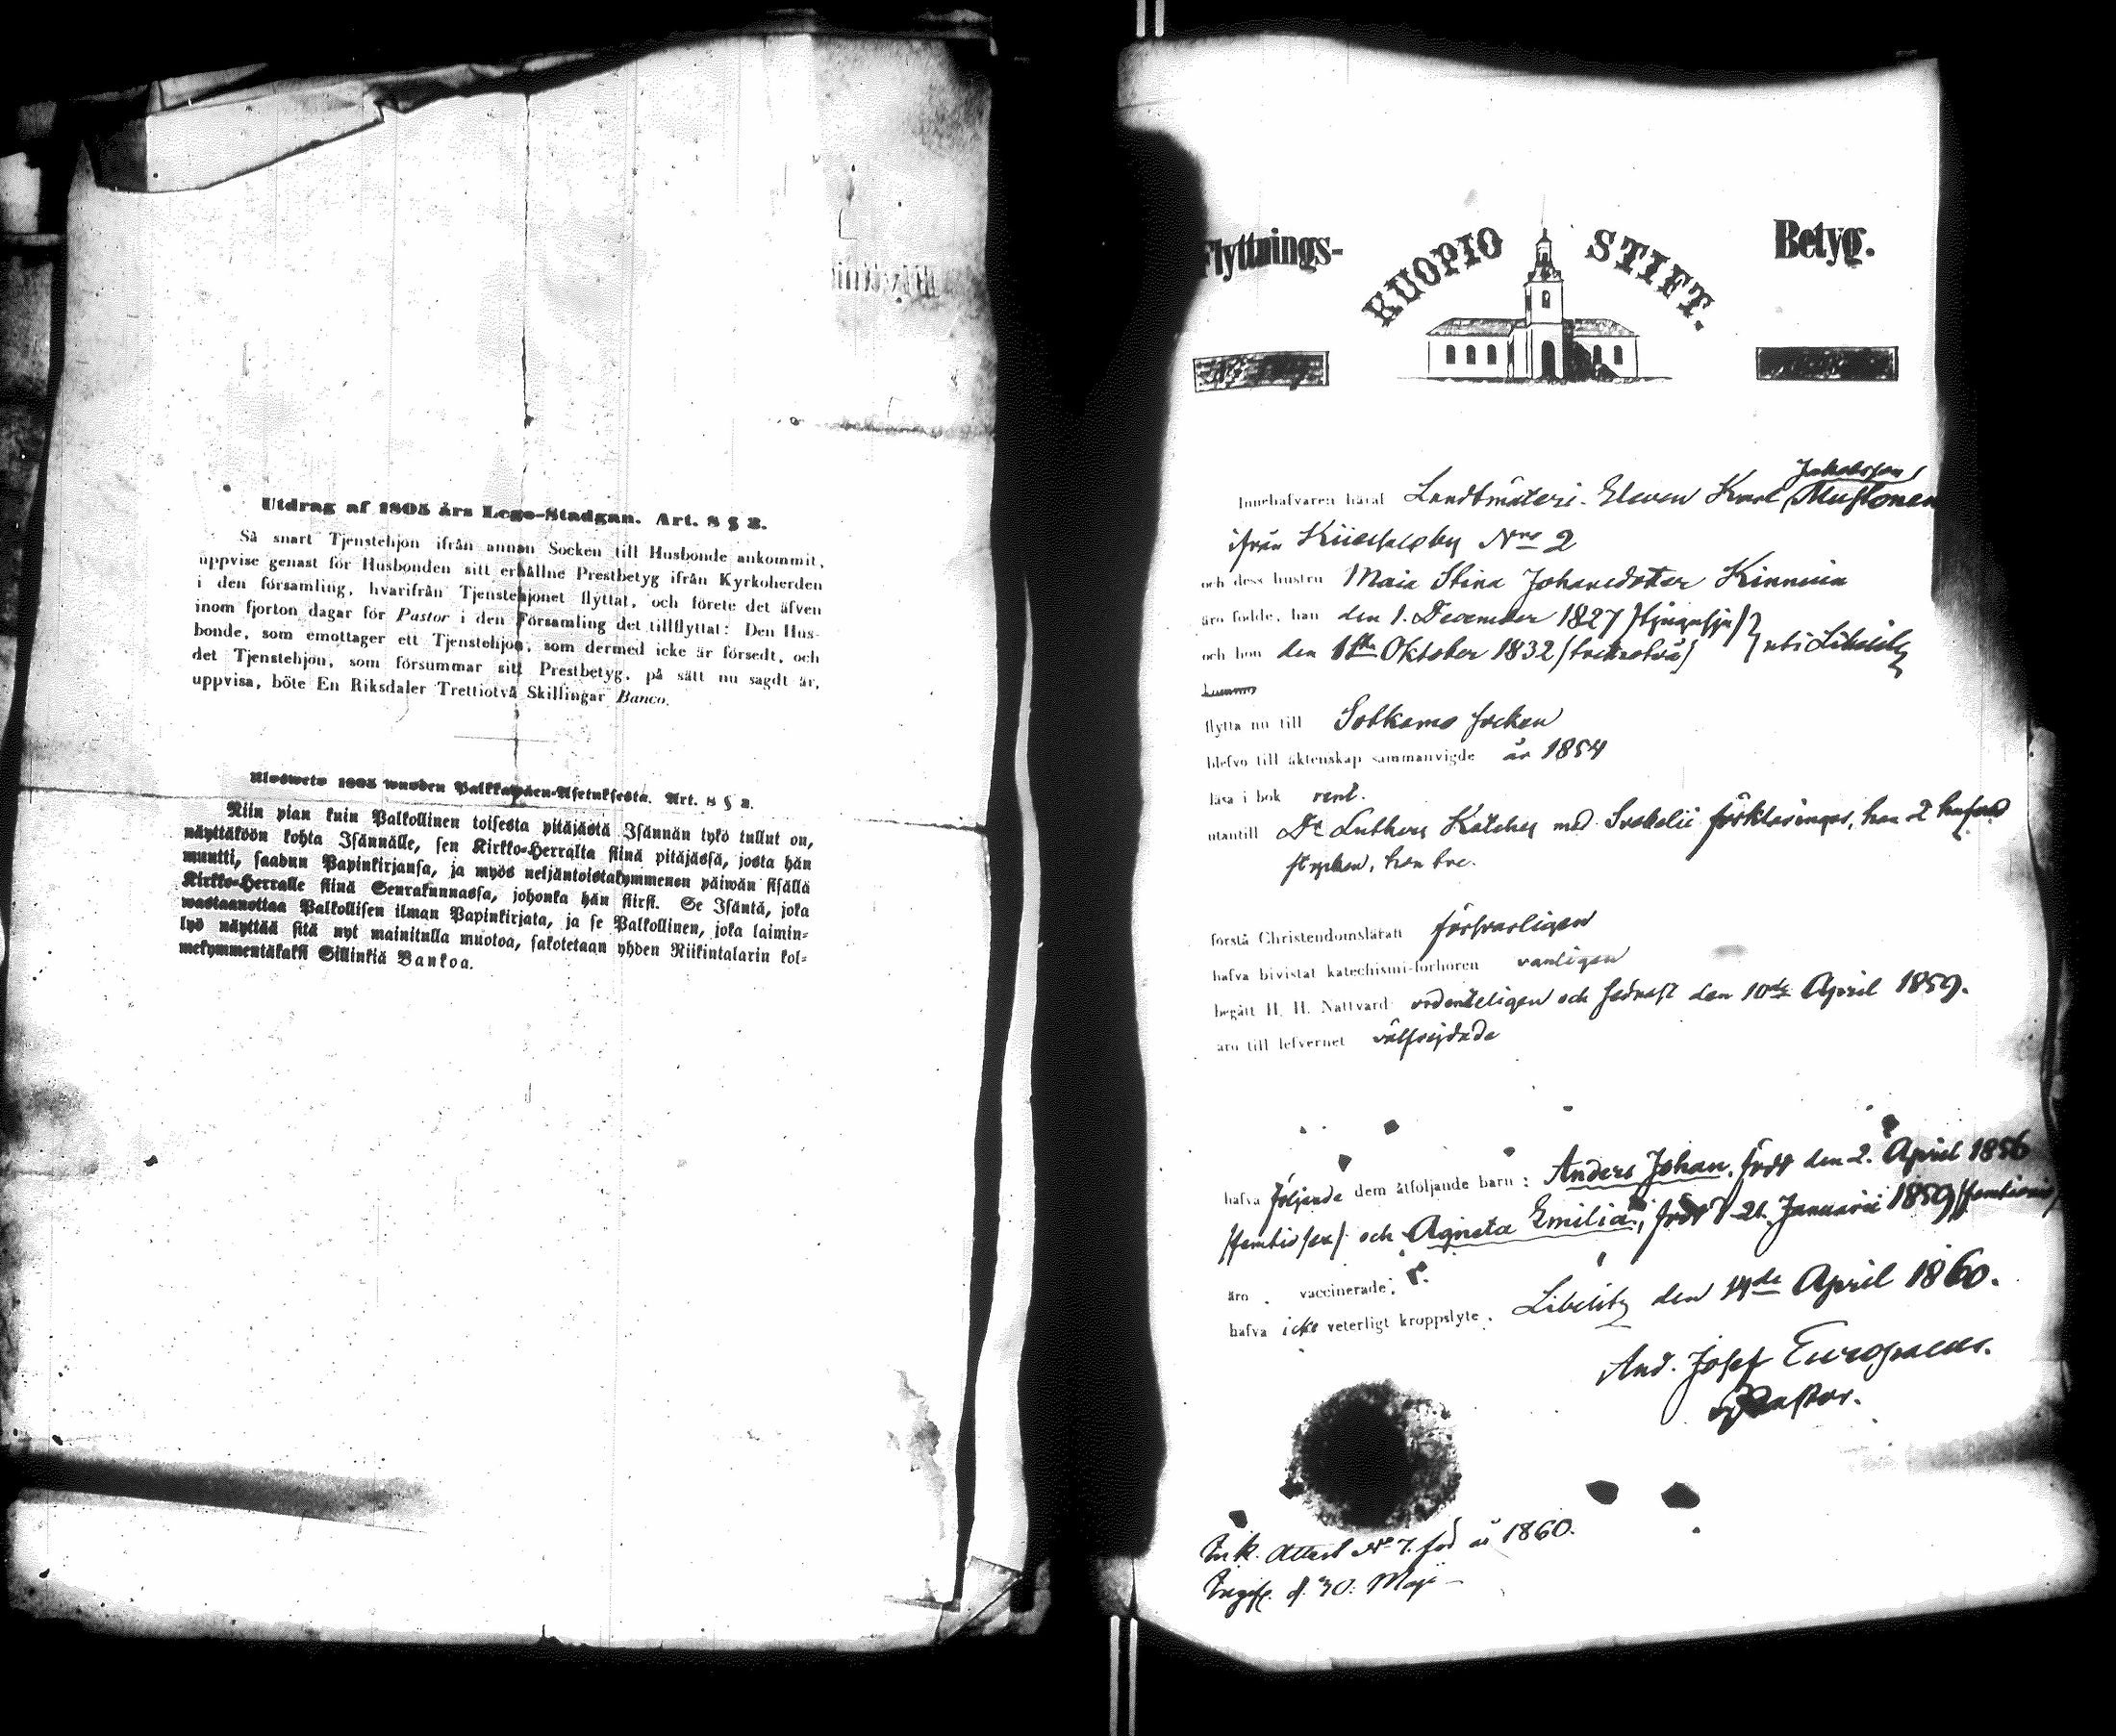 Utdrag af 1805 års Lego-Stadgan. Art. 8 § 2.
Så snart Tjenstehjon ifrån annan Socken till Husbonde ankommit,
uppvise genast för Husbonden sitt erhållne Prestbetyg ifrån Kyrkoherden
i den församling, hvarifrån Tjenstehjonet flyttat, och förete det äfven
inom fjorton dagar för Pastor i den Församling det tillflyttat: Den Hus-
bonde, som emottager ett Tjenstehjon, som dermed icke är försedt, och
det Tjenstehjon, som försummar sitt Prestbetyg, på sätt nu sagdt är,
uppvisa, böte En Riksdaler Trettiotvå Skillingar Banco.
Ulosweto 1805 wuoden Palkkawäen-Asetuksesta. Art. 8 § 2.
Niin pian kuin Palkollinen toisesta pitäjästä Isännän tykö tullut on,
näyttäköön kohta Isännälle, sen Kirkko-Herralta siinä pitäjässä, josta hän
muutti, saadun Papinkirjansa, ja myös neljäntoistakymmenen päiwän sisällä
Kirkko-Herralle siinä Seurakunnassa, johonka hän siirsi. Se Isäntä, joka
wastaanottaa Palkollisen ilman Papinkirjata, ja se Palkollinen, joka laimin-
lyö näyttää sitä nyt mainitulla muotoa, sakotetaan yhden Riikintalarin kol-
mekymmentäkaksi Sillinkiä Bankoa.
Flyttnings- KUOPIO STIFT. Betyg.
Jakobsson
Innehafvaren häraf Landtmäteri-Eleven Karl Mustonen
ifrån Nro 2
och dess hustru Maia Stina Johansdotter Kinnuin
äro födde, han den 1. December 1827 /tjugusju/
och hon den 1ste Oktober 1832 /trettiotvå/ uti Libelitz
flytta nu till Sotkamo socken
blefvo till äktenskap sammanvigde år 1854
läsa i bok rent.
utantill Dr Luthers Katches med Svebelii förklaringar, han 2 hufvud
stycken, hon tre.
förstå Christendomsläran försvarligen
hafva bivistat katechismi-förhören vanligen
begått H. H. Nattvard ordenteligen och sednast den 10de April 1859.
äro till lefvernet välfrejdade
hafva följande dem åtföljande barn: Anders Johan, född den 2. April 1856
/femtiosex/ och Agneta Emilia, född d 21. Januarii 1859 /femtionio/
äro vaccinerade;
hafva icke veterligt kroppslyte. Libelitz den 14de April 1860.
And. Josef Europaeus.
Pastor.
Ink. Attest No 7. för år 1860.
d. 30. Maji